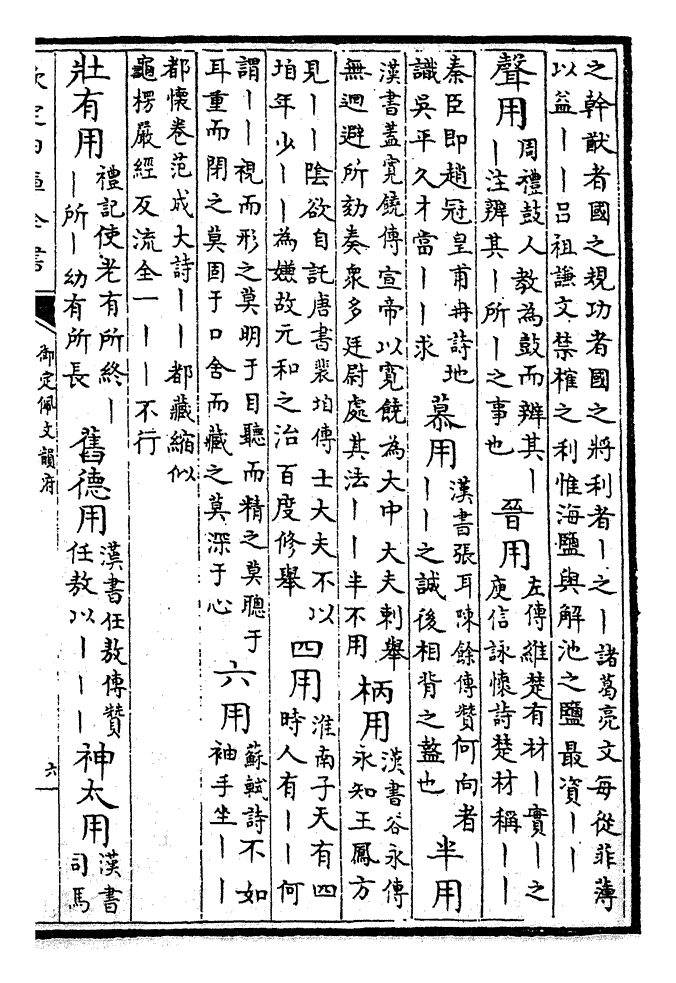 之幹猷者國之規功者國之將利者丨之丨諸葛亮文每從菲薄
以益丨丨呂祖謙文禁榷之利惟海鹽與解池之鹽最資丨丨
聲用周禮鼓人教為鼓而辨其丨丨注辨其丨所丨之事也 晉用左傳維楚有材丨實丨之庾信詠懷詩楚材稱丨丨
秦臣即趙冠皇甫冉詩地識吳平久才當丨丨求 慕用漢書張耳陳餘傳贊何向者丨丨之誠後相背之盭也 半用
漢書蓋寛饒傳宣帝以寛饒為太中大夫刺舉無迴避所劾奏衆多廷尉處其法丨丨半不用 柄用漢書谷永傳永知王鳳方
見丨丨陰欲自託唐書裴垍傳士大夫不以垍年少丨丨為嫌故元和之治百度修舉 四用淮南子天有四時人有丨丨何
謂丨丨視而形之莫明于目聽而精之莫聰于耳重而閉之莫固于口舍而藏之莫深于心 六用蘇軾詩不如袖手坐丨丨
都懷卷范成大詩丨丨都藏縮似龜楞嚴經反流全一丨丨丨不行
壯有用禮記使老有所終丨丨所丨幼有所長 舊德用漢書任敖傳贊任敖以丨丨丨 神太用漢書司馬
欽定四庫全書
御定佩文韻府
六